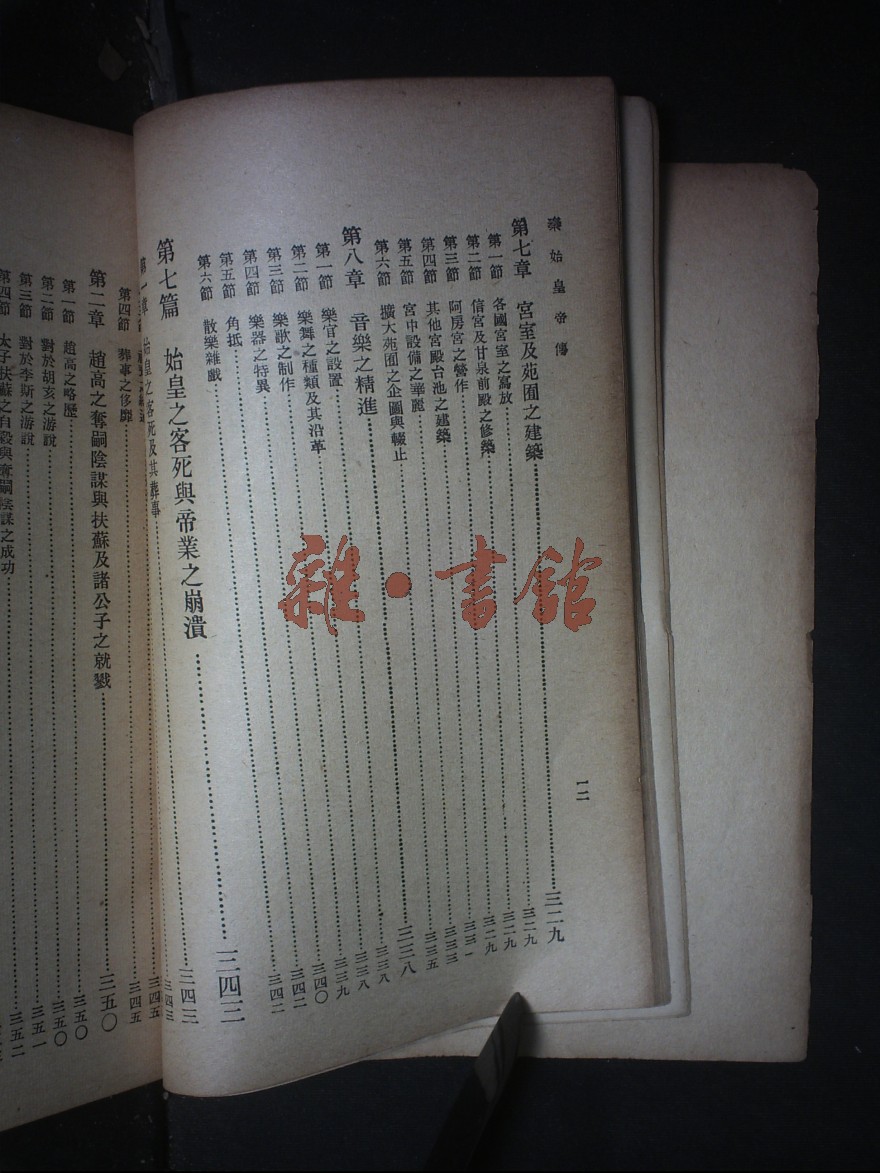 秦始皇帝傳 一二
第七章 宮室及苑囿之建築 三二九
第一節 各國宮室之寫放 三二九
第二節 信宮及甘泉前殿之修築 三二九
第三節 阿房宮之營作 三二九
第四節 其他宮殿台池之建築 三三一
第五節 宮中設備之華麗 三三三
第六節 擴大苑囿之企圖與輟止 三三五
第八章 音樂之精進 三三八
第一節 樂官之設置 三三八
第二節 樂舞之種類及其沿革 三三八
第三節 樂歌之制作 三三九
第四節 樂器之特異 三四〇
第五節 角抵 三四二
第六節 散樂雜戲 三四二
第七篇 始皇之客死與帝業之崩潰 三四三
第一章 始皇之客死及其葬事 三四三
三四三
三四五
第四節 葬事之侈靡 三四五
第二章 趙高之奪嗣陰謀與扶蘇及諸公子之就戮 三五〇
第一節 趙高之略歷 三五〇
第二節 對於胡亥之游說 三五〇
第三節 對於李斯之游說 三五一
第四節 太子扶蘇之自殺與奪嗣陰謀之成功 三五二
雜·書館